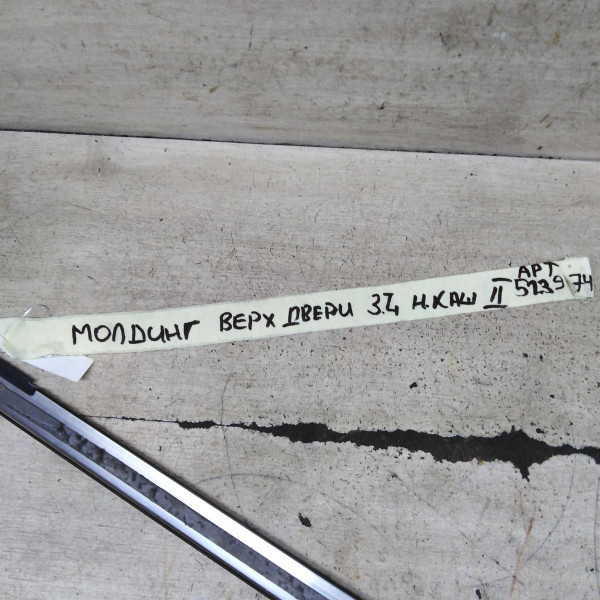 МОЛДИНГ ВЕРХ ДВЕРИ З.Ц Н.КАШ II АРТ
513974